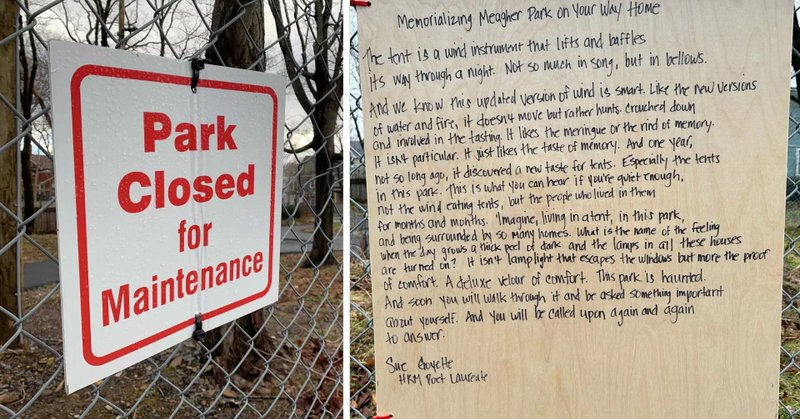 Park
Closed
for
Maintenance
Memorializing Meagher Park on Your Way Home
The tent is a wind instrument that lifts and baffles
its way through a night. Not so much in song, but in bellows.
And we know this updated version of wind is smart. Like the new versions
of water and fire, it doesn't move but rather hunts. Crouched down
and involved in the tasting. It likes the meringue or the rind of memory.
It isn't particular. It just likes the taste of memory. And one year,
not so long ago, it discovered a new taste for tents. Especially the tents
in this park. This is what you can hear if you're quiet enough,
not the wind eating tents, but the people who lived in them
for months and months. Imagine, living in a tent, in this park,
and being surrounded by so many homes. What is the name of the feeling
when the day grows a thick peel of dark and the lamps in all these houses
are turned on? It isn't lamplight that escapes the windows but more the proof
of comfort. A deluxe velour of comfort. This park is haunted.
And soon you will walk through it and be asked something important
about yourself. And you will be called upon again and again
to answer.
Sue Goyette
HRM Poet Laureate